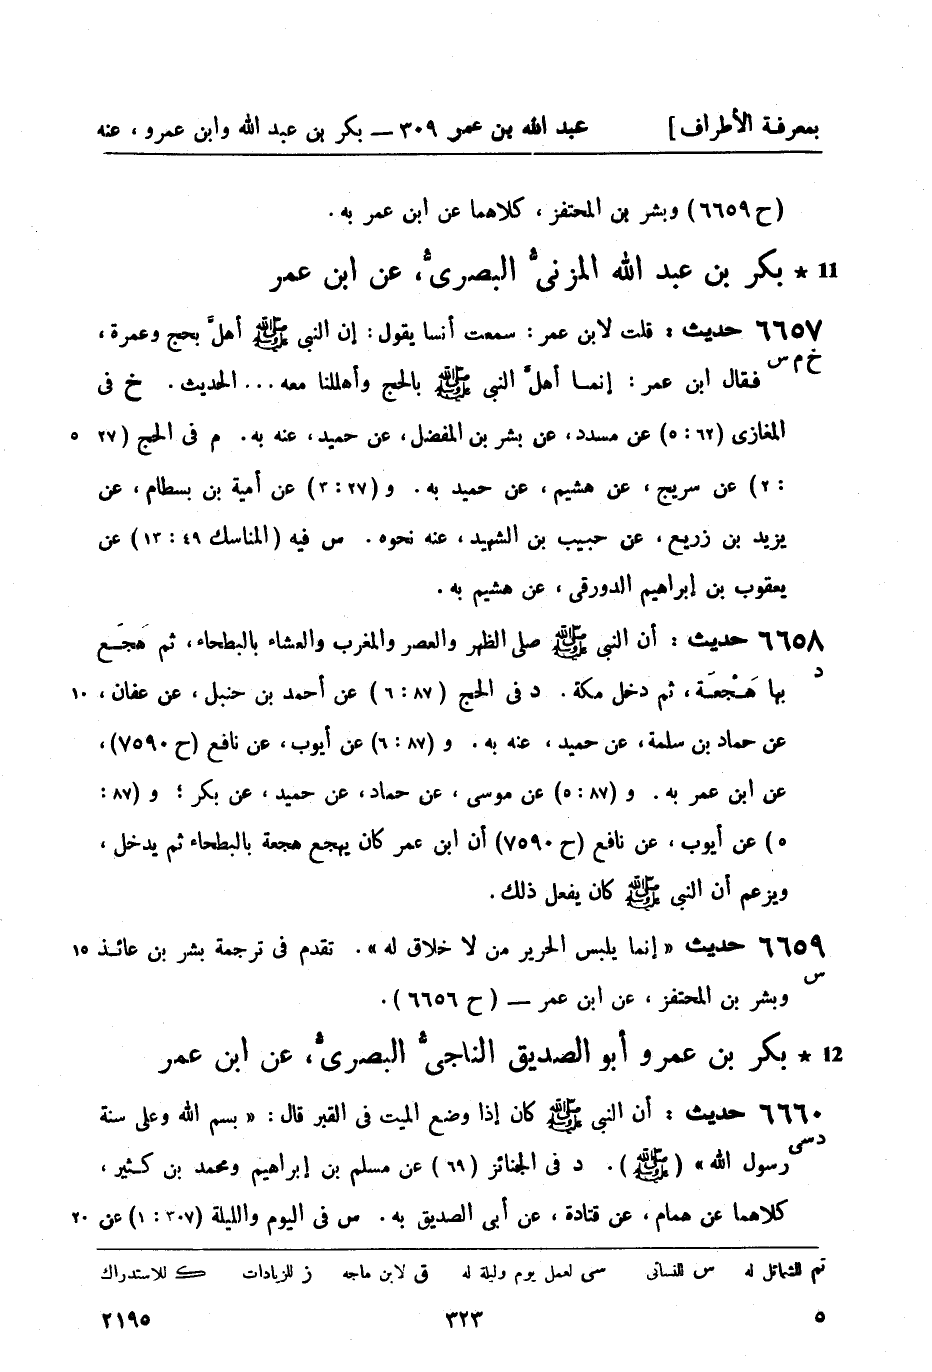 بمعرفة الأطراف] عبد الله بن عمر ٣٠٩ ــ بكر بن عبد الله وابن عمرو ، عنه
(ح ٦٦٥٩) وبشر بن المحتفز ، كلاهما عن ابن عمر به .
11 ★ بكر بن عبد الله المزنىُّ البصرىُّ، عن ابن عمر
٦٦٥٧ حديث : قلت لابن عمر : سمعت أنسا يقول : إن النبى ﷺ أهلَّ بحج وعمرة ،
خ م س فقال ابن عمر : إنمـا أهلَّ النبى ﷺ بالحج وأهللنا معه ... الحديث . خ فى
المغازى (٦٢ : ٥) عن مسدد، عن بشر بن المفضل، عن حميد، عنه به . م فى الحج (٢٧ ٥
: ٢) عن سريج ، عن هشيم ، عن حميد به . و (٢٧ : ٣) عن أمية بن بسطام ، عن
يزيد بن زريع ، عن حبيب بن الشهيد ، عنه نحوه . س فيه (المناسك ٤٩ : ١٣) عن
يعقوب بن إبراهيم الدورقى ، عن هشيم به .
٦٦٥٨ حديث : أن النبى ﷺ صلى الظهر والعصر والمغرب والعشاء بالبطحاء ، ثم هَجَـع
د بها هَـْجعَـة ، ثم دخل مكة . د فى الحج (٨٧ : ٦) عن أحمد بن حنبل ، عن عفان ، ١٠
عن حماد بن سلمة ، عن حميد ، عنه به . و (٨٧ : ٦) عن أيوب ، عن نافع (ح ٧٥٩٠)،
عن ابن عمر به . و (٨٧ : ٥) عن موسى ، عن حماد ، عن حميد ، عن بكر ؛ و (٨٧ :
٥) عن أيوب ، عن نافع (ح ٧٥٩٠) أن ابن عمر كان يهجع هجعة بالبطحاء ثم يدخل ،
ويزعم أن النبى ﷺ كان يفعل ذلك .
٦٦٥٩ حديث « إنما يلبس الحرير من لا خلاق له » . تقدم فى ترجمة بشر بن عائـذ ١٥
س وبشر بن المحتفز ، عن ابن عمر ــ (ح ٦٦٥٦) .
12 ★ بكر بن عمرو أبو الصديق الناجىُّ البصرىُّ، عن ابن عمر
٦٦٦٠ حديث : أن النبى ﷺ كان إذا وضع الميت فى القبر قال : « بسم الله وعلى سنة
د سى رسول الله » (ﷺ) . د فى الجنائز (٦٩) عن مسلم بن إبراهيم ومحمد بن كـثير ،
كلاهما عن همام ، عن قتادة ، عن أبى الصديق به . س فى اليوم والليلة (٣٠٧ : ١) عن ٢٠
تم للشمائل له س للنسائى سى لعمل يوم وليلة له ق لابن ماجه ز للزيادات ك للاستدراك
٥ ٣٢٣ ٢١٩٥